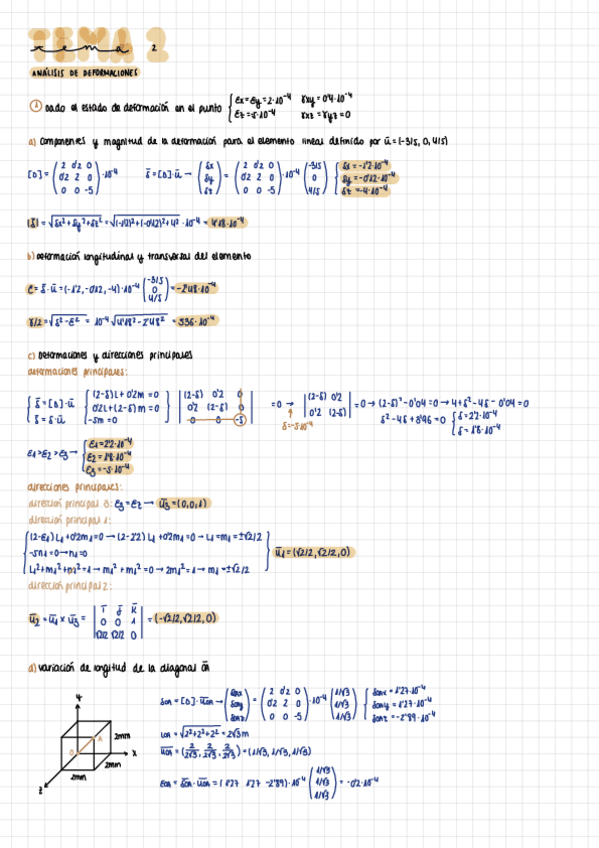 TEMA 2
tema 2
ANÁLISIS DE DEFORMACIONES
① Dado el estado de deformación en el punto { εx=εy=2·10⁻⁴ γxy=0'4·10⁻⁴
εz=-5·10⁻⁴ γxz=γyz=0
a) Componentes y magnitud de la deformación para el elemento lineal definido por ū=(-3/5, 0, 4/5)
[D] = (2 0'2 0 / 0'2 2 0 / 0 0 -5)·10⁻⁴ δ̄=[D]·ū → (δx / δy / δz) = (2 0'2 0 / 0'2 2 0 / 0 0 -5)·10⁻⁴ (-3/5 / 0 / 4/5) { δx=-1'2·10⁻⁴ δy=-0'12·10⁻⁴ δz=-4·10⁻⁴
|δ̄| = √δx²+δy²+δz² = √(-1'2)²+(-0'12)²+4² ·10⁻⁴ = 4'18·10⁻⁴
b) Deformación longitudinal y transversal del elemento
ε = δ̄·ū = (-1'2, -0'12, -4)·10⁻⁴ (-3/5 / 0 / 4/5) = -2'48·10⁻⁴
γ/2 = √δ²-ε² = 10⁻⁴ √4'18²-2'48² = 3'36·10⁻⁴
c) Deformaciones y direcciones principales
deformaciones principales:
{ δ̄=[D]·ū δ̄=δ·ū { (2-δ)L+0'2m=0 0'2L+(2-δ)m=0 -5m=0 } |(2-δ) 0'2 0 / 0'2 (2-δ) 0 / 0 0 -5| =0 → |(2-δ) 0'2 / 0'2 (2-δ)| =0 → (2-δ)²-0'04=0 → 4+δ²-4δ-0'04=0
δ=-5·10⁻⁴
δ²-4δ+3'96=0 { δ=2'2·10⁻⁴ δ=1'8·10⁻⁴
ε1>ε2>ε3 → { ε1=2'2·10⁻⁴ ε2=1'8·10⁻⁴ ε3=-5·10⁻⁴
direcciones principales:
dirección principal 3: ε3=εz → ū3=(0,0,1)
dirección principal 1:
(2-ε1)L1+0'2m1=0 → (2-2'2)L1+0'2m1=0 → L1=m1=±√2/2
-5n1=0 → n1=0
L1²+m1²+n1²=1 → m1²+m1²=0 → 2m1²=1 → m1=±√2/2
ū1=(√2/2, √2/2, 0)
dirección principal 2:
ū2=ū1×ū3= |i j k / 0 0 1 / √2/2 √2/2 0| = (-√2/2, √2/2, 0)
d) Variación de longitud de la diagonal OA
Y
A
O
X
Z
2mm
2mm
2mm
δOA=[D]·ūOA → (δOAx / δOAy / δOAz) = (2 0'2 0 / 0'2 2 0 / 0 0 -5)·10⁻⁴ (1/√3 / 1/√3 / 1/√3) { δOAx=1'27·10⁻⁴ δOAy=1'27·10⁻⁴ δOAz=-2'89·10⁻⁴
LOA=√2²+2²+2²=2√3 m
ūOA=(2/2√3, 2/2√3, 2/2√3)=(1/√3, 1/√3, 1/√3)
εOA=δ̄OA·ūOA=(1'27 1'27 -2'89)·10⁻⁴ (1/√3 / 1/√3 / 1/√3) = -0'2·10⁻⁴